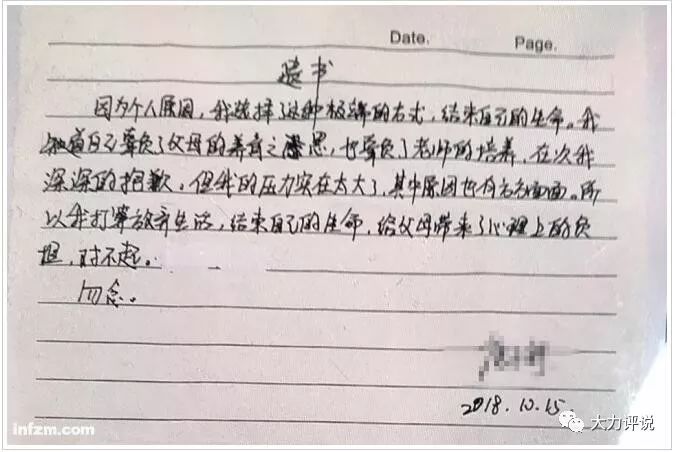 Date.    Page.
遗书
因为个人原因，我选择了这种极端的方式，结束自己的生命。我
知道自己辜负了父母的养育之恩，也辜负了老师的培养，在次我
深深的抱歉。但我的压力实在太大了，其中原因也有方方面面。所
以我打算放弃生活，结束自己的生命，给父母带来了心理上的负
担，对不起。
勿念。
2018.10.15
infzm.com
大力评说